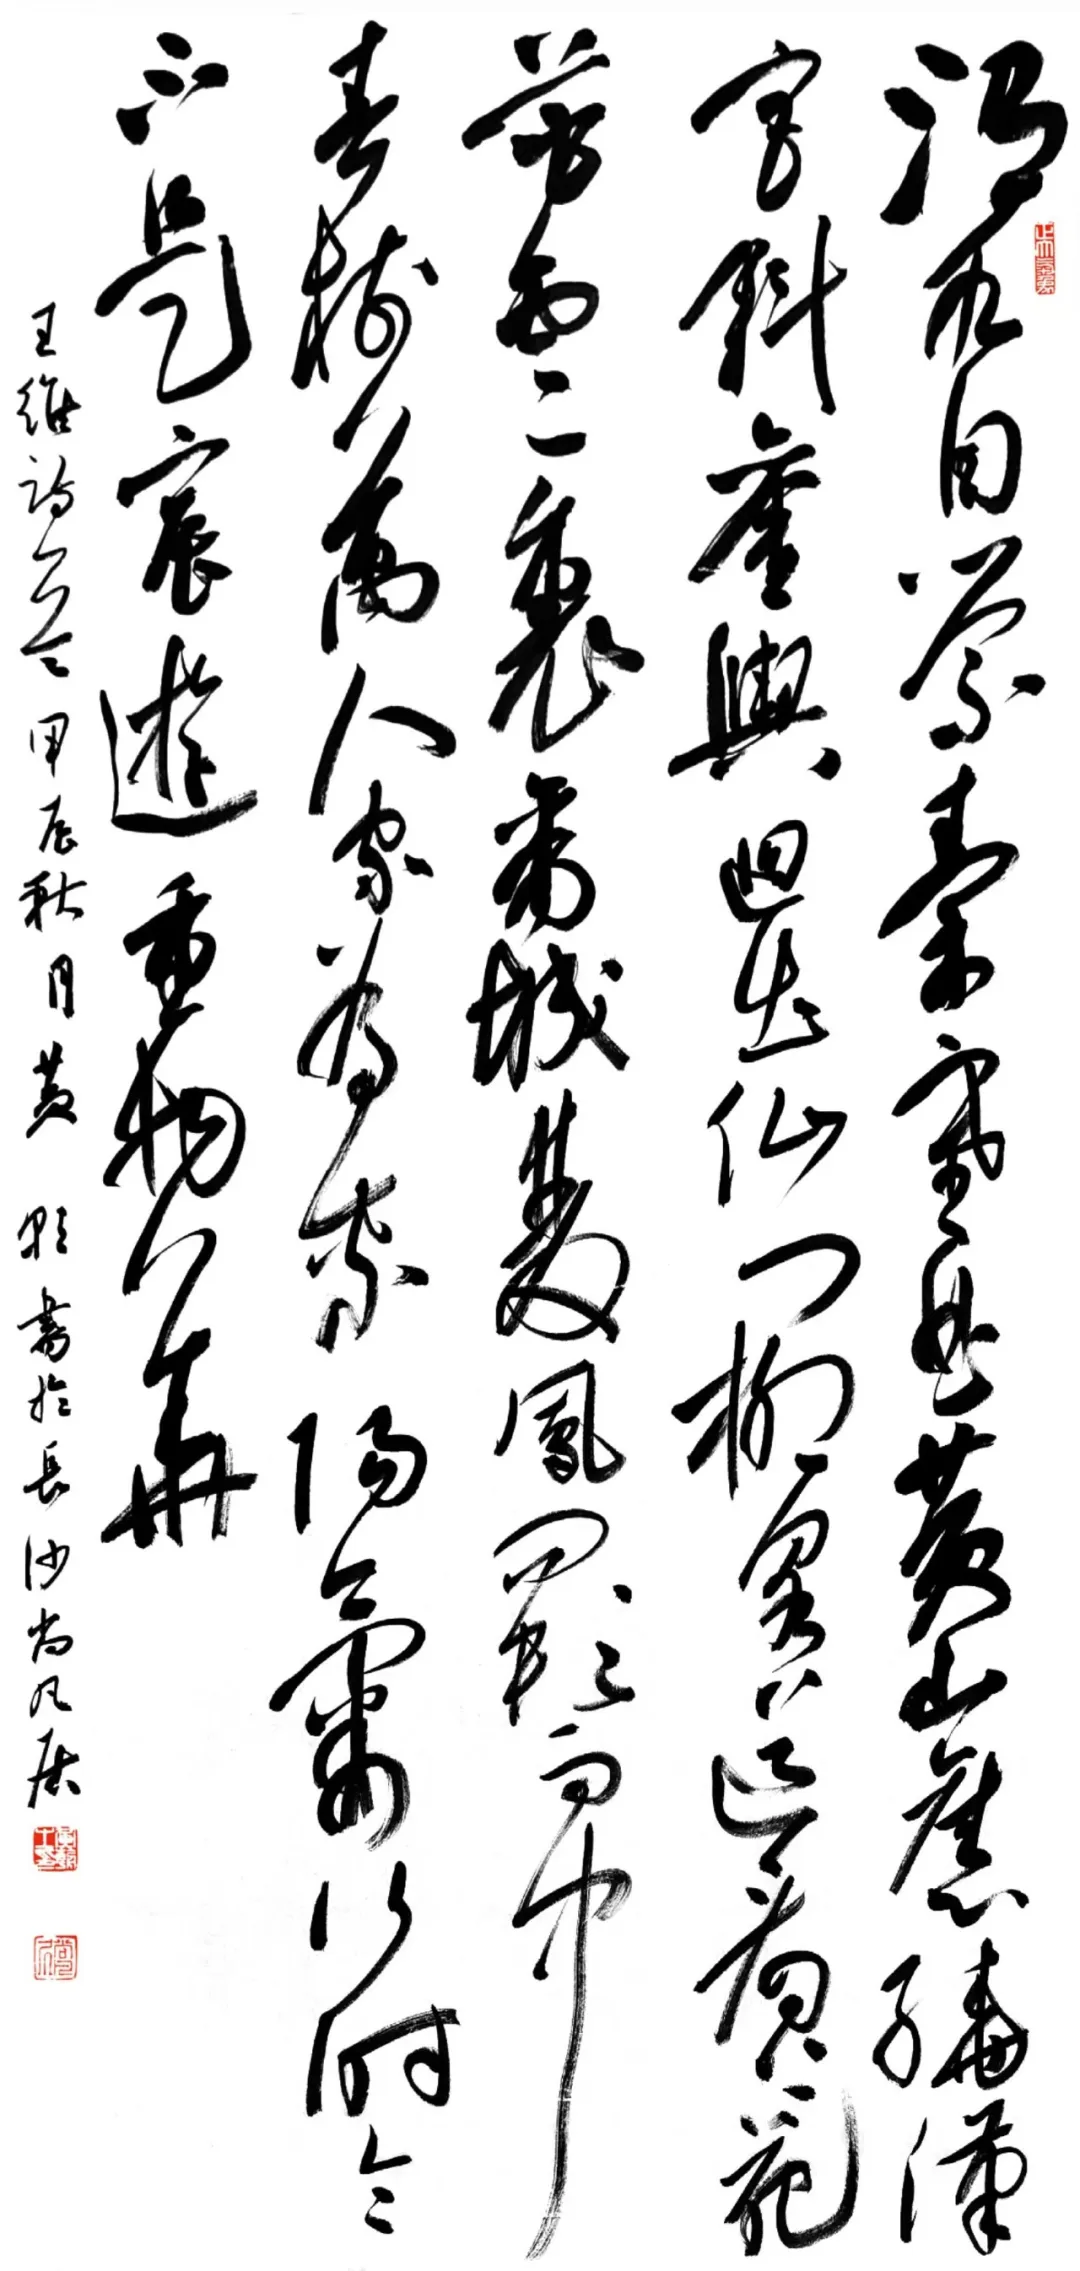 渭水自縈秦塞曲黃山舊繞漢
宮斜鑾輿迥出仙門柳閣道看苑
雲裏帝城雙鳳闕雨中
春樹萬人家為乘陽氣行時令
不是宸遊重物華
王維詩 甲辰秋月黃 書於長沙尚凡居